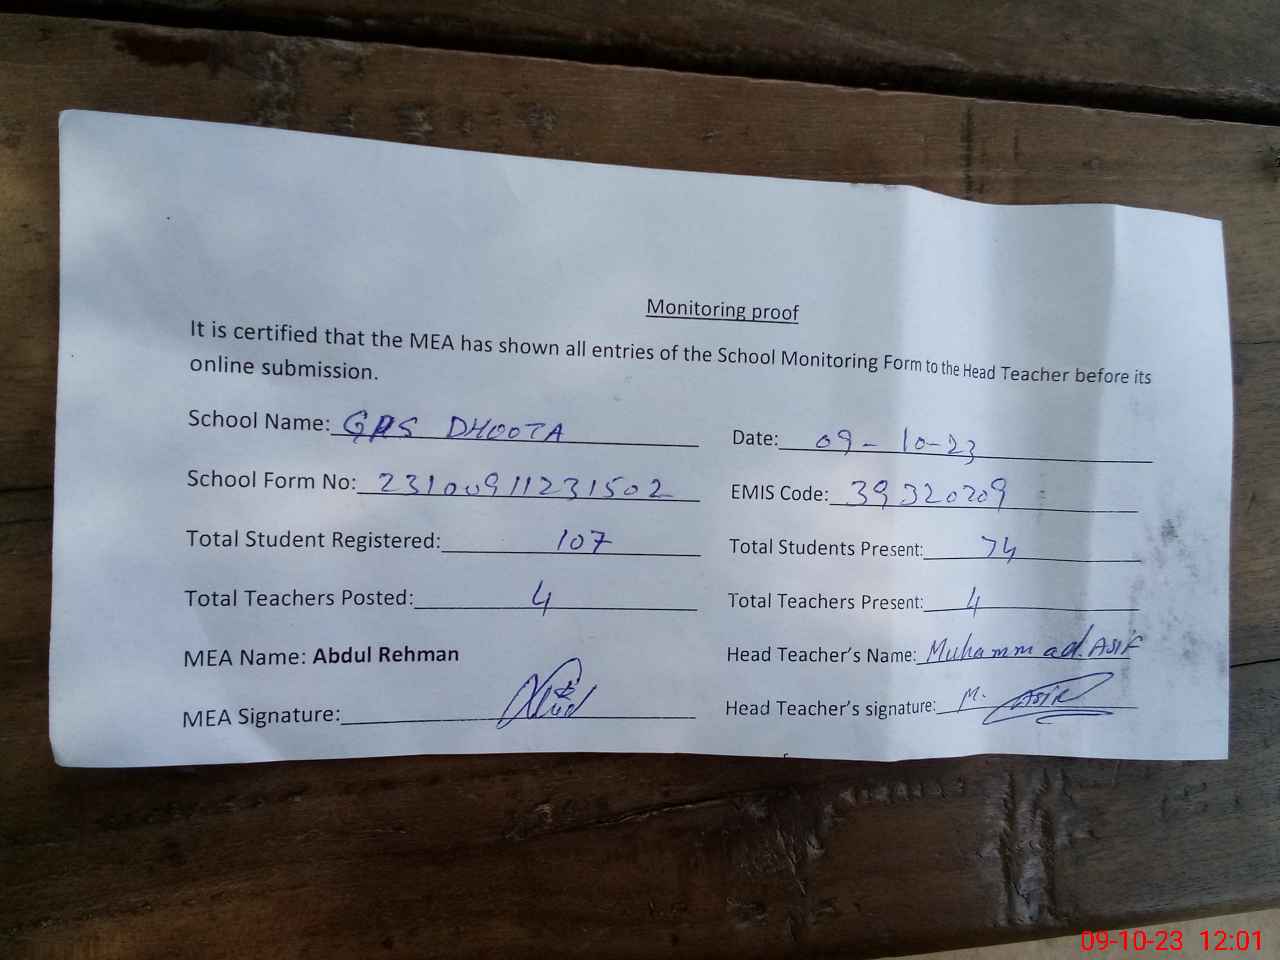 Monitoring proof
It is certified that the MEA has shown all entries of the School Monitoring Form to the Head Teacher before its
online submission.
School Name: GPS DHOOTA Date: 09-10-23
School Form No: 23100911231502 EMIS Code: 39320209
Total Student Registered: 107 Total Students Present: 74
Total Teachers Posted: 4 Total Teachers Present: 4
MEA Name: Abdul Rehman Head Teacher's Name: Muhammad.ASIF
MEA Signature: Head Teacher's signature: M. ASIF
09-10-23 12:01